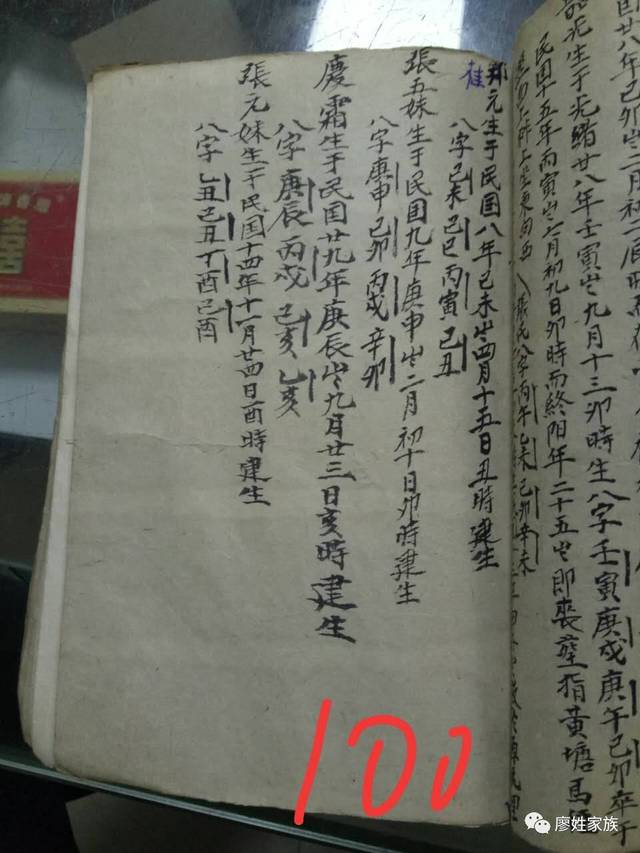 廿八年己卯岁二月
光生于光緒廿八年壬寅岁九月十三卯時生八字壬寅庚戌庚午己卯卒于
民国十五年丙寅岁七月初九日卯時而終阳年二十五岁即丧塟指黄塘馬
坐東向西 張氏八字丙午乙未己卯辛未
邦元生于民国八年己未岁四月十五日丑時建生
桂
八字己未己巳丙寅己丑
張五妹生于民国九年庚申岁二月初十日卯時建生
八字庚申己卯丙戌辛卯
慶霜生于民国廿九年庚辰岁九月廿三日亥時建生
八字庚辰丙戌己亥乙亥
張元妹生于民国十四年十一月廿四日酉時建生
八字乙丑己丑丁酉己酉
100
廖姓家族